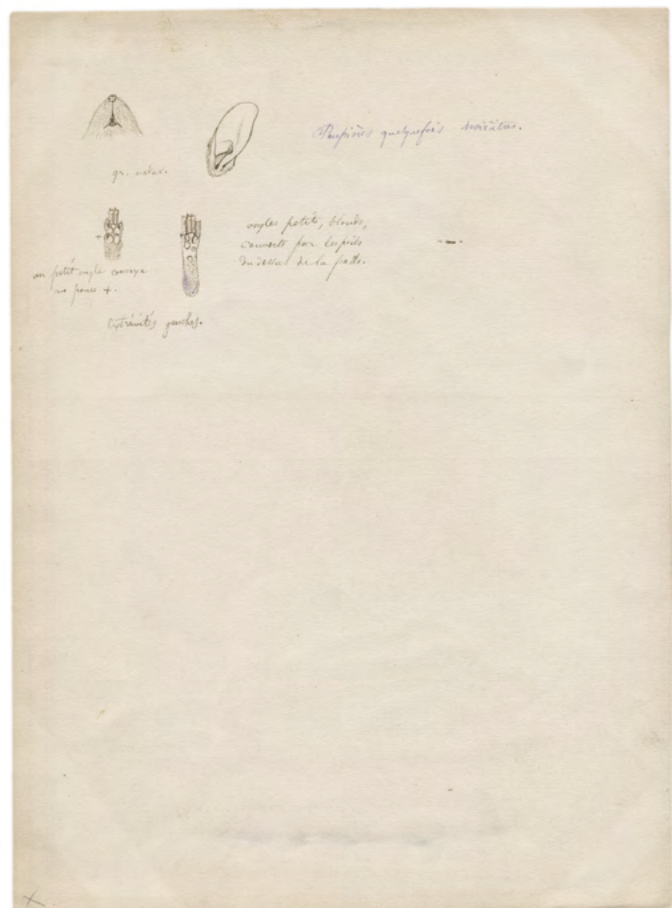 Paupières quelquefois noirâtres.
gr. natur.
ongles petits, blonds,
couverts par les poils
du dessus de la patte.
un petit ongle convexe
au pouce +.
Extrémités gauches.